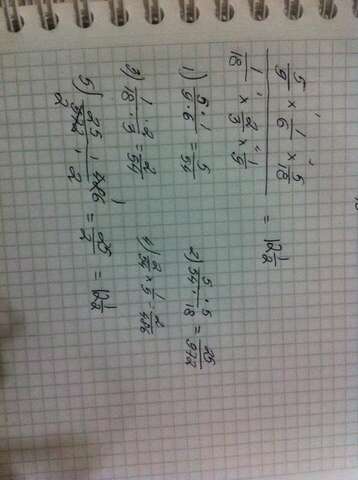 5/9 × 1/6 × 5/18
1/18 × 2/3 × 1/9 = 12 1/2
1) 5 · 1 / 9 · 6 = 5/54
2) 5 · 5 / 54 · 18 = 25/972
3) 1 · 2 / 18 · 3 = 2/54
4) 2/54 × 1/9 = 2/486
5) 25 · 486 / 972 · 2 = 25/2 = 12 1/2